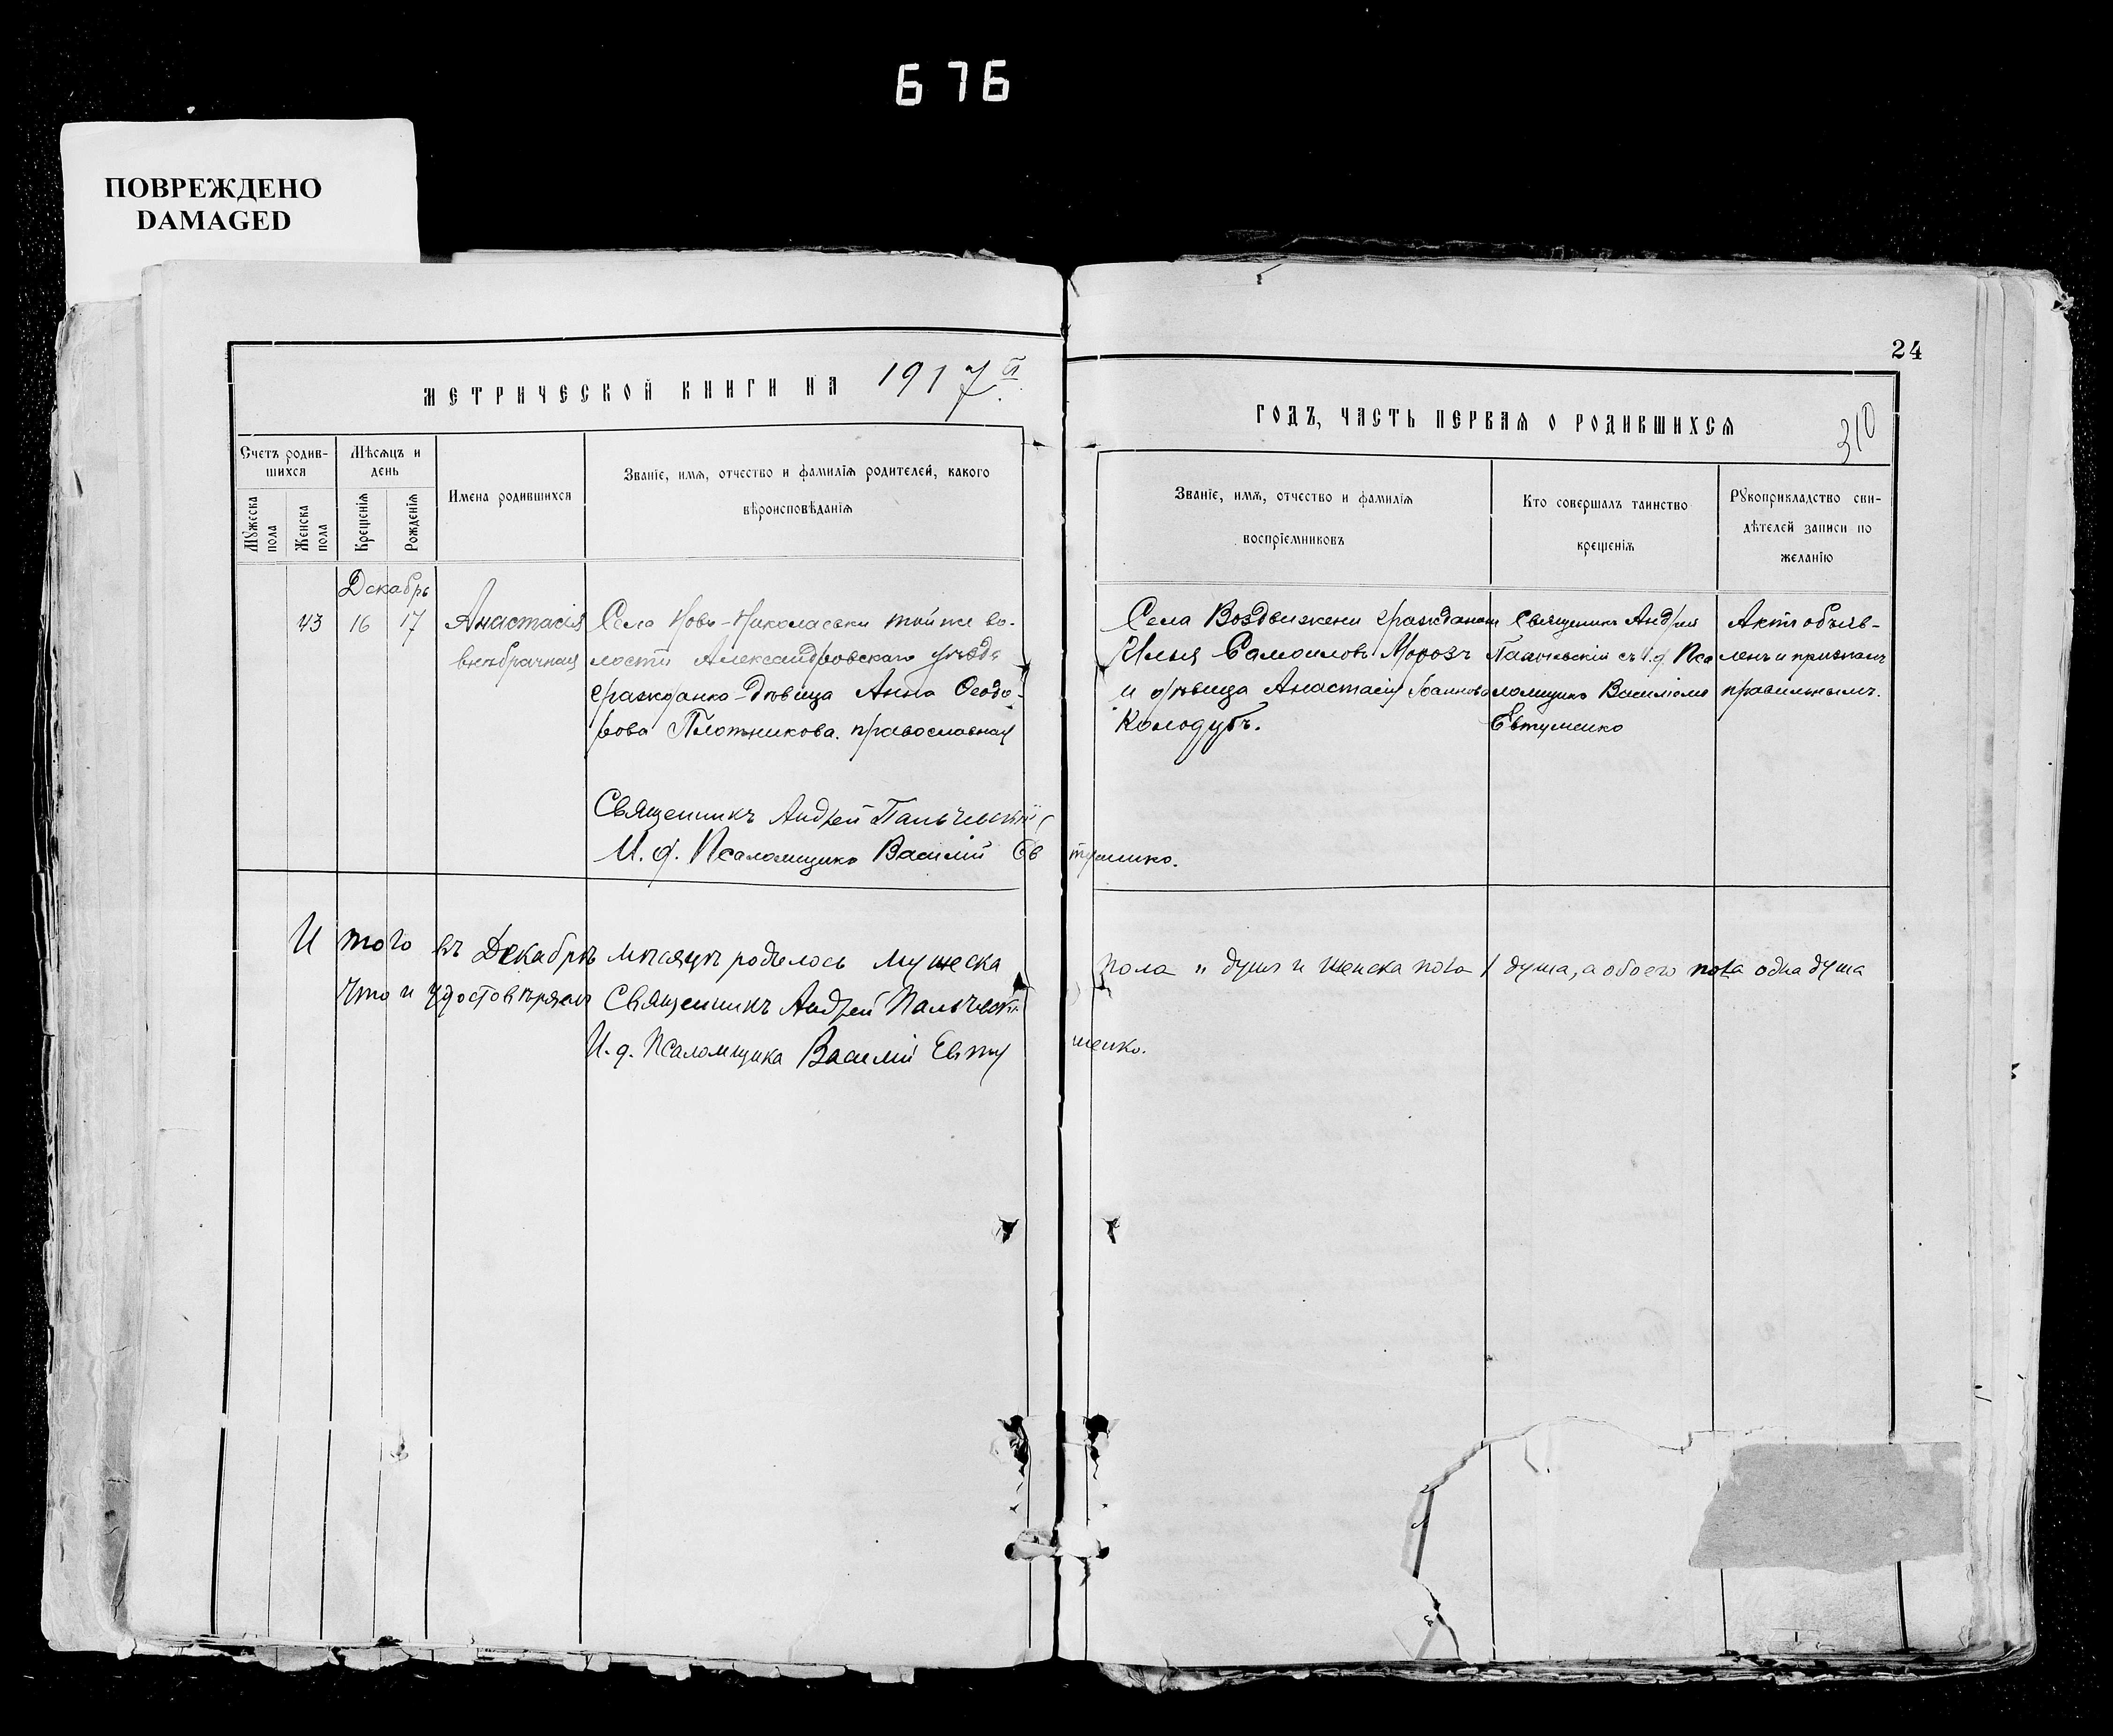 676
ПОВРЕЖДЕНО
DAMAGED
24
МЕТРИЧЕСКОЙ КНИГИ НА 1917й
ГОДЪ, ЧАСТЬ ПЕРВАЯ О РОДИВШИХСЯ
310
Счетъ родив-
шихся
Мѣсяцъ и
день
Мужеска
пола
Женска
пола
Крещенія
Рожденія
Имена родившихся
Званіе, имя, отчество и фамилія родителей, какого
вѣроисповѣданія
Званіе, имя, отчество и фамилія
воспріемниковъ
Кто совершалъ таинство
крещенія
Рукоприкладство сви-
дѣтелей записи по
желанію
Декабрь
43 16 17
Анастасія
внѣбрачная
Села Ново-Николаевки той же во-
лости Александровскаго уѣзда
гражданка-дѣвица Анна Ѳеодо-
рова Плотникова. православная
Села Воздвиженки гражданинъ
Илья Самоиловъ Морозъ
и дѣвица Анастасія Іоаннова
Колодубъ.
Священникъ Андрей
Пальчевскій съ И. д. Пса
ломщика Василіемъ
Евтушенко
Актъ объяв-
ленъ и признанъ
правильнымъ.
Священникъ Андрей Пальчевскій
И. д. Псаломщика Василій Евтушенко.
Итого въ Декабрѣ мѣсяцѣ родилось мужеска пола " душъ и женска пола 1 душа, а обоего пола одна душа
Что и удостовѣряемъ Священникъ Андрей Пальчевскій
И. д. Псаломщика Василій Евтушенко.